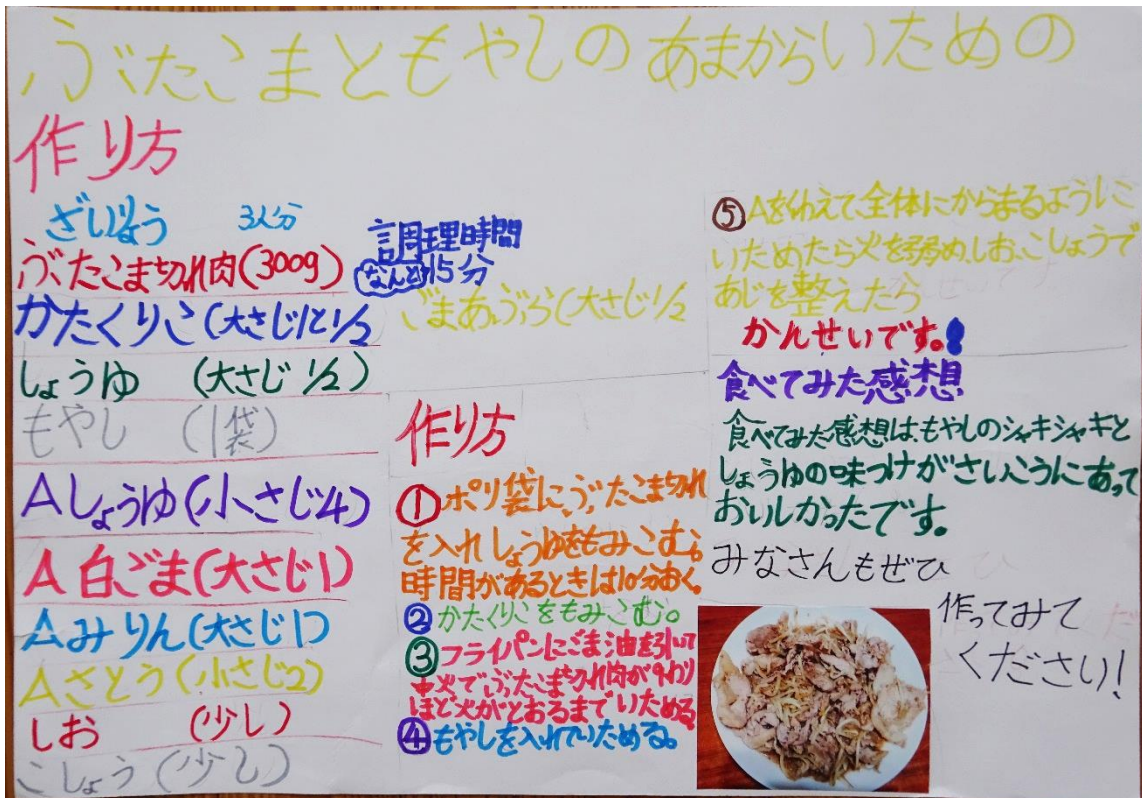 ぶたこまともやしのあまからいための
作り方
ざいりょう 3人分
ぶたこま切れ肉(300g)
かたくりこ(大さじ1と1/2
しょうゆ (大さじ 1/2)
もやし (1袋)
Aしょうゆ(小さじ4)
A白ごま(大さじ1)
Aみりん(大さじ1)
Aさとう(小さじ2)
しお (少し)
こしょう(少し)
調理時間
なんと 15分
ごまあぶら(大さじ1/2
作り方
①ポリ袋に、ぶたこま切れ
を入れしょうゆをもみこむ。
時間があるときは10分おく。
②かたくりこをもみこむ。
③フライパンにごま油を引いて
中火でぶたこま切れ肉が9わり
ほど火がとおるまでいためる
④もやしを入れていためる。
⑤Aをくわえて、全体にからまるように
いためたら火を弱め、しお、こしょうで
あじを整えたら
かんせいです。
食べてみた感想
食べてみた感想は、もやしのシャキシャキと
しょうゆの味つけがさいこうにあって
おいしかったです。
みなさんもぜひ
作ってみて
ください!